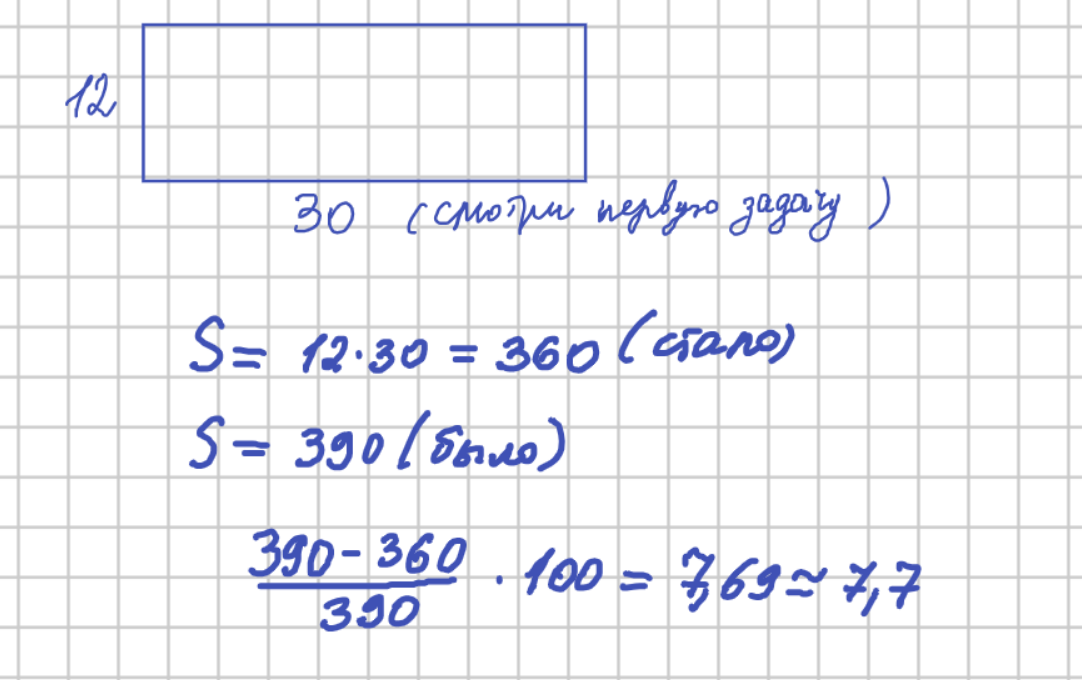 12
30 (смотри первую задачу)
S = 12·30 = 360 (стало)
S = 390 (было)
390 - 360
390
· 100 = 7,69 ≈ 7,7